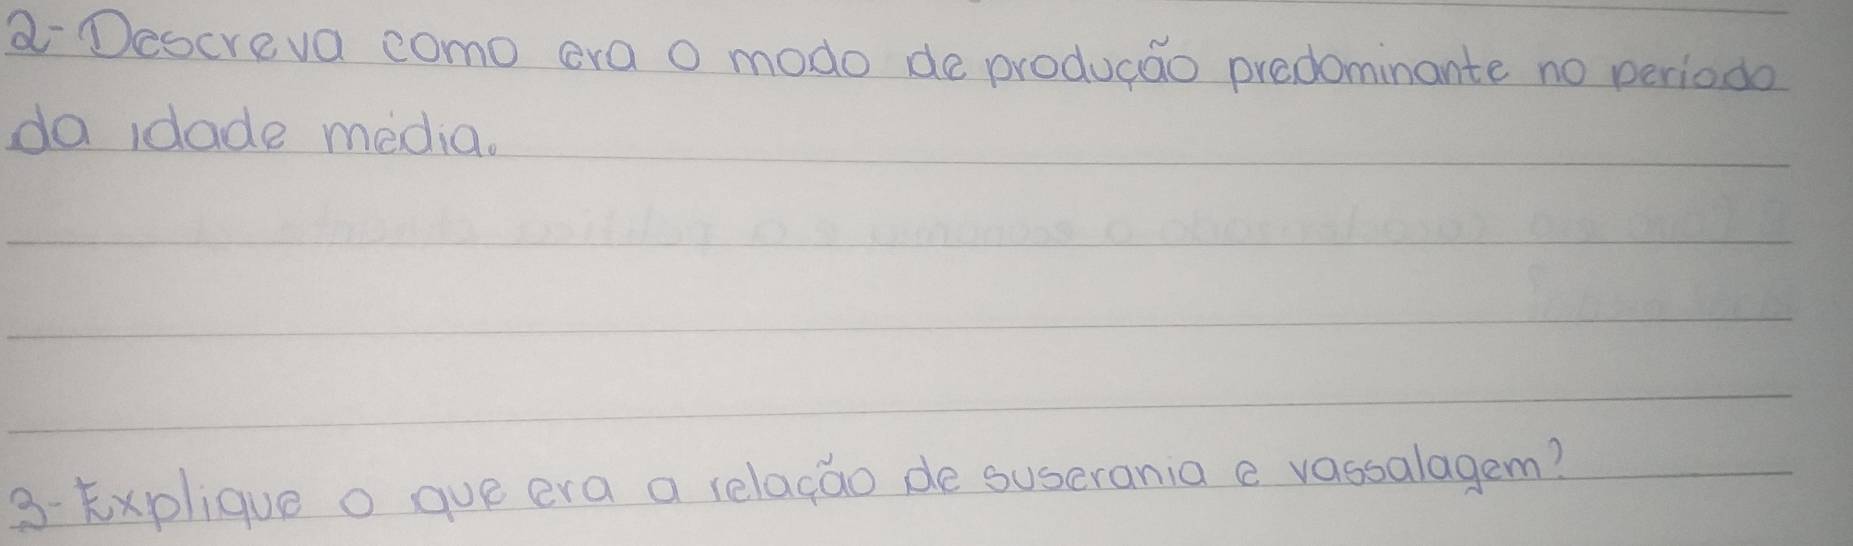 2- Descreva como era o modo de produção predominante no período
da idade média.
3- Explique o que era a relação de suserania e vassalagem?